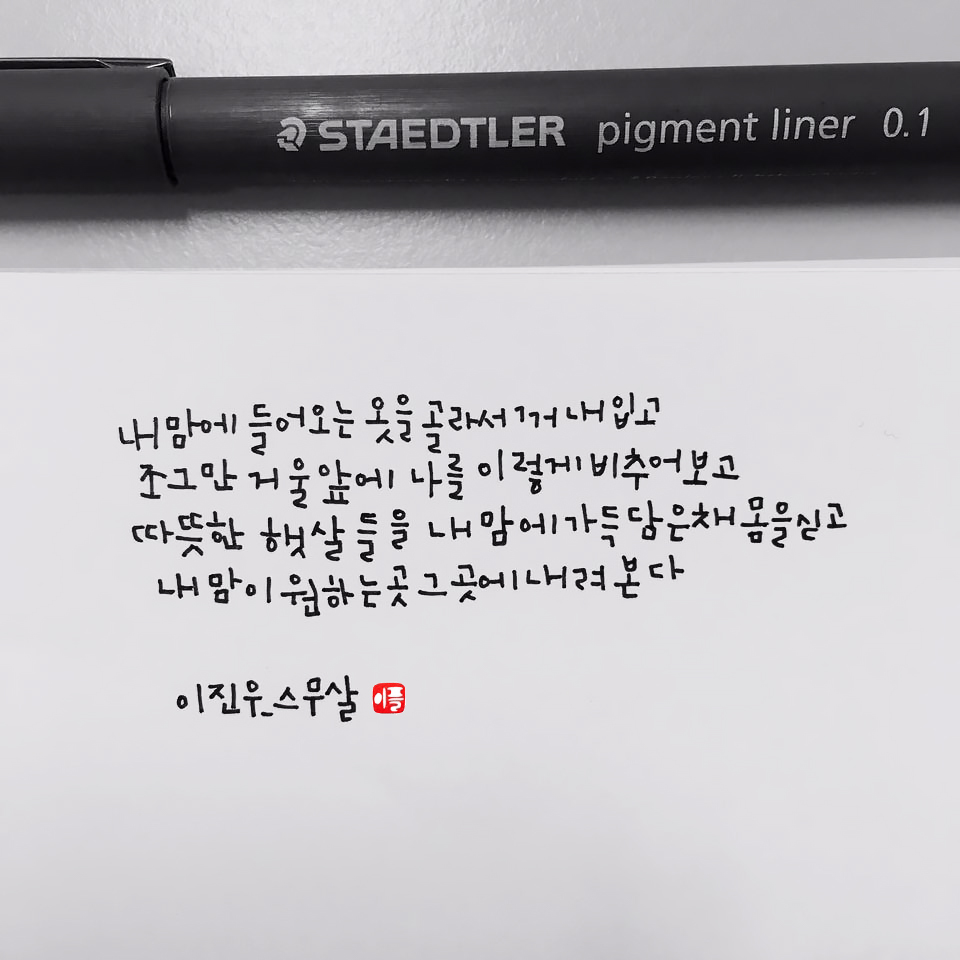 STAEDTLER pigment liner 0.1
내 맘에 들어오는 옷을 골라서 꺼내 입고
조그만 거울 앞에 나를 이렇게 비추어 보고
따뜻한 햇살들을 내 맘에 가득 담은채 몸을 싣고
내 맘이 원하는 곳 그 곳에 내려 본다
이진우_스무살
이플